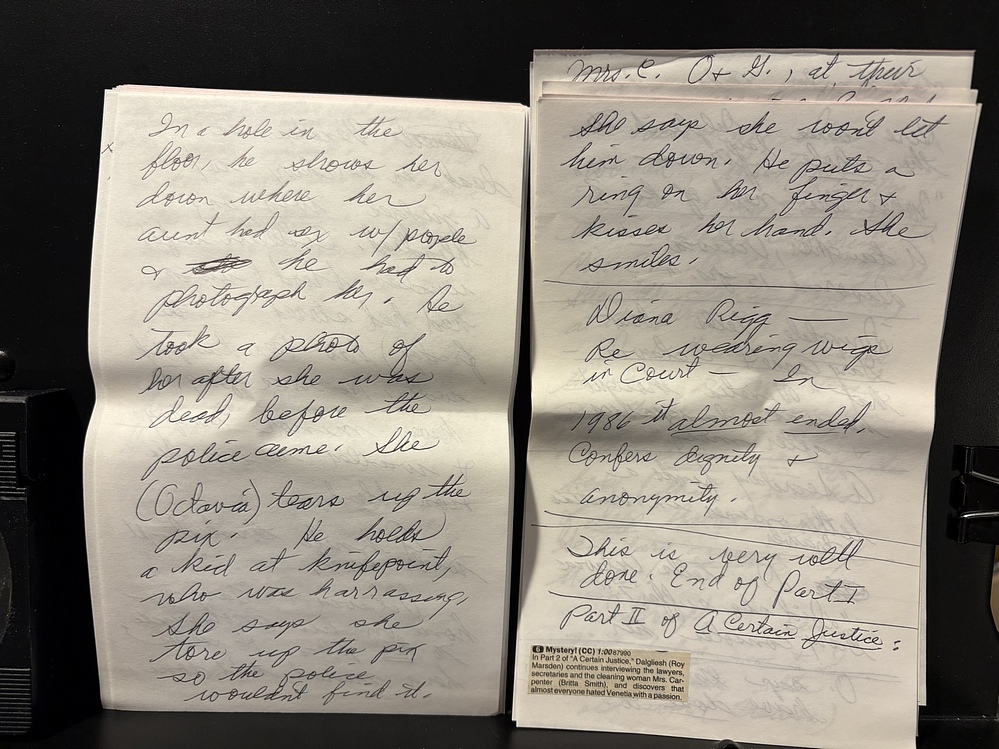 In a hole in the
floor, he shows her
down where her
aunt had sex w/ people
& he had to
photograph her. He
took a photo of
her after she was
dead, before the
police came. She
(Octavia) tears up the
pix. He holds
a kid at knifepoint,
who was harrassing,
She says she
tore up the pix
so the police
wouldn't find it.
Mrs. C. O & G., at their
She says she won't let
him down. He puts a
ring on her finger &
kisses her hand. She
smiles.
Diana Rigg —
Re wearing wigs
in Court — In
1986 it almost ended.
Confers dignity &
anonymity.
This is very well
done. End of Part I
Part II of A Certain Justice:
6 Mystery! (CC) 1:00 87990
In Part 2 of "A Certain Justice," Dalgliesh (Roy
Marsden) continues interviewing the lawyers,
secretaries and the cleaning woman Mrs. Car-
penter (Britta Smith), and discovers that
almost everyone hated Venetia with a passion.